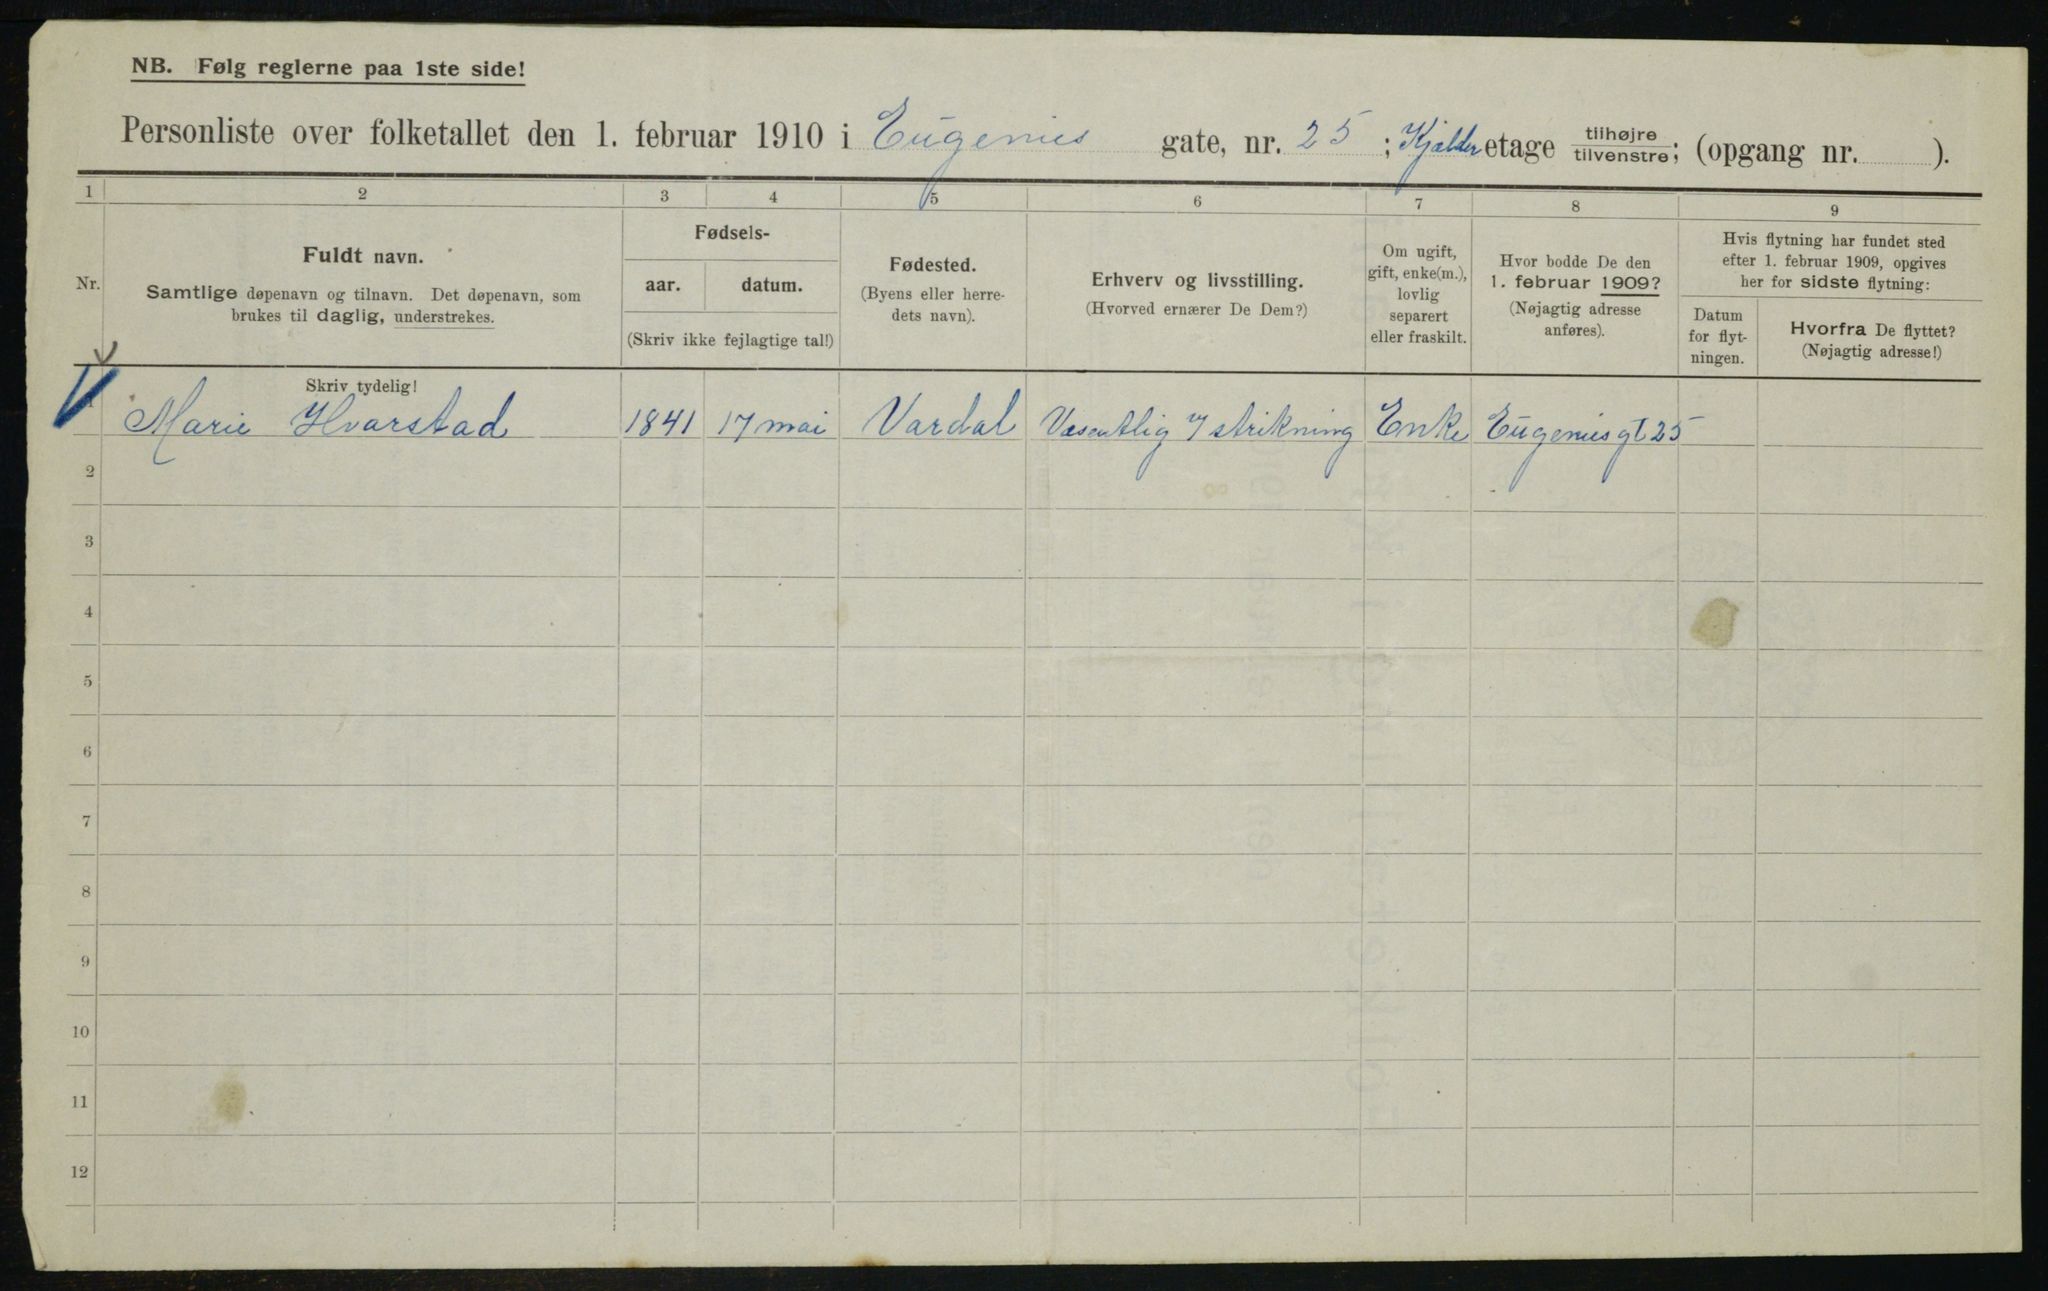 NB. Følg reglerne paa 1ste side!
Personliste over folketallet den 1. februar 1910 i Eugenies gate, nr. 25; Kjælder etage tilhøjre tilvenstre; (opgang nr. ).
1 2 3 4 5 6 7 8 9
Nr.
Fuldt navn.
Samtlige døpenavn og tilnavn. Det døpenavn, som
brukes til daglig, understrekes.
Fødsels-
aar. datum.
(Skriv ikke fejlagtige tal!)
Fødested.
(Byens eller herre-
dets navn).
Erhverv og livsstilling.
(Hvorved ernærer De Dem?)
Om ugift,
gift, enke(m.),
lovlig
separert
eller fraskilt.
Hvor bodde De den
1. februar 1909?
(Nøjagtig adresse
anføres).
Hvis flytning har fundet sted
efter 1. februar 1909, opgives
her for sidste flytning:
Datum
for flyt-
ningen.
Hvorfra De flyttet?
(Nøjagtig adresse!)
Skriv tydelig!
1 Marie Hvarstad 1841 17 mai Vardal Væsentlig strikning Enke Eugenies gt 25
2
3
4
5
6
7
8
9
10
11
12